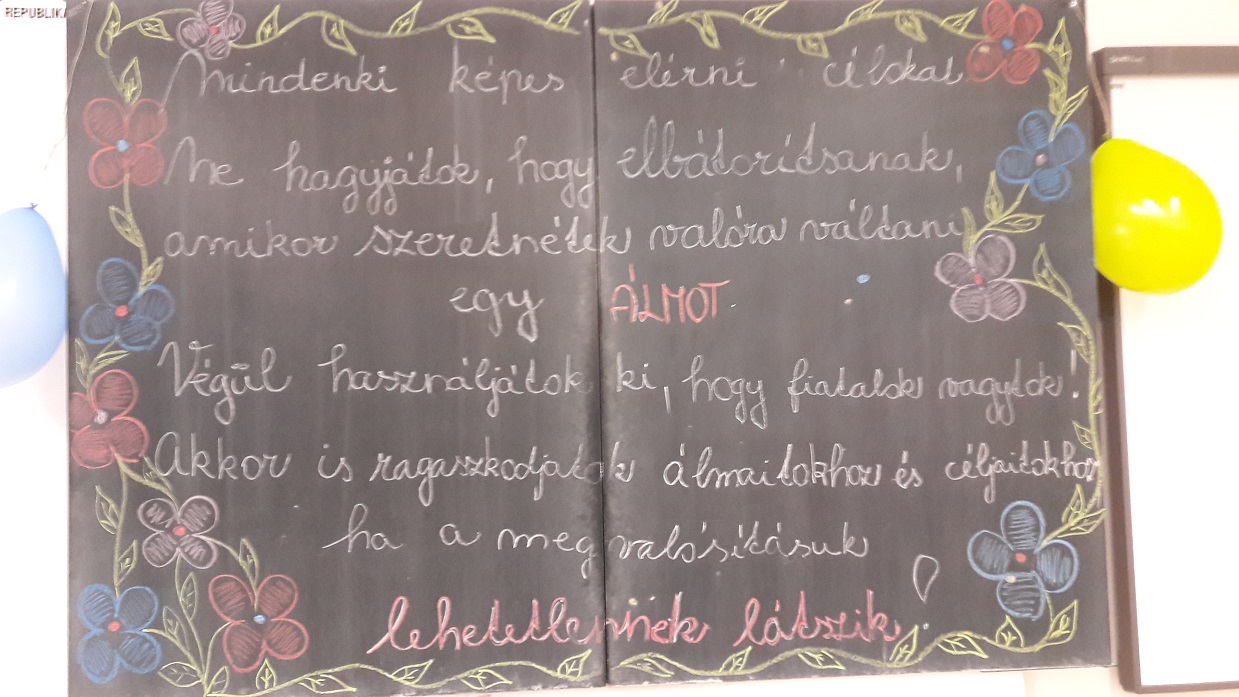 REPUBLIKA
Mindenki képes elérni célokat.
Ne hagyjátok, hogy elbátorítsanak,
amikor szeretnétek valóra váltani
egy ÁLMOT.
Végül használjátok ki, hogy fiatalok vagytok!
Akkor is ragaszkodjatok álmaitokhoz és céljaitokhoz
ha a megvalósításuk
lehetetlennek látszik!